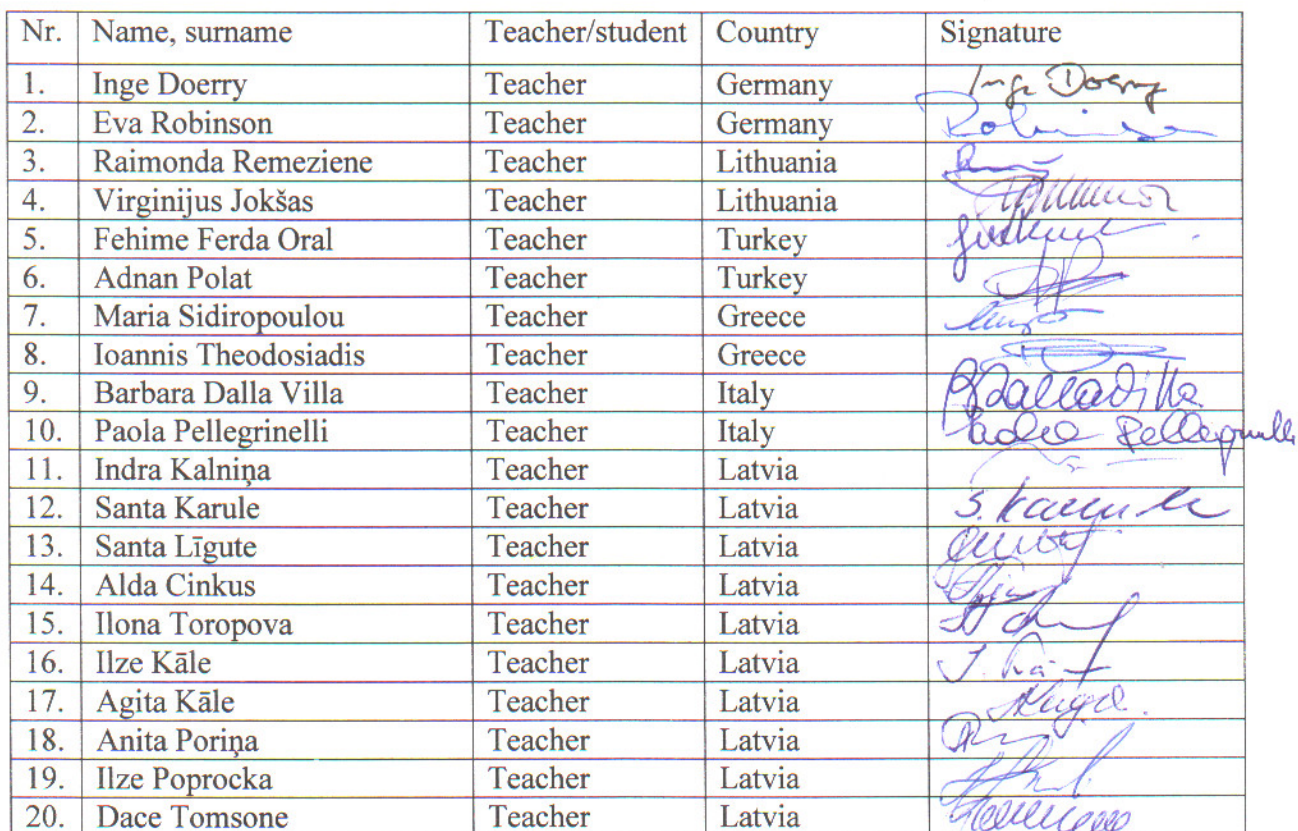 Nr. Name, surname Teacher/student Country Signature
1. Inge Doerry Teacher Germany Inge Doerry
2. Eva Robinson Teacher Germany Robinson
3. Raimonda Remeziene Teacher Lithuania
4. Virginijus Jokšas Teacher Lithuania
5. Fehime Ferda Oral Teacher Turkey
6. Adnan Polat Teacher Turkey
7. Maria Sidiropoulou Teacher Greece
8. Ioannis Theodosiadis Teacher Greece
9. Barbara Dalla Villa Teacher Italy BDallaVilla
10. Paola Pellegrinelli Teacher Italy Paola Pellegrinelli
11. Indra Kalniņa Teacher Latvia
12. Santa Karule Teacher Latvia S. Karule
13. Santa Līgute Teacher Latvia
14. Alda Cinkus Teacher Latvia
15. Ilona Toropova Teacher Latvia
16. Ilze Kāle Teacher Latvia
17. Agita Kāle Teacher Latvia
18. Anita Poriņa Teacher Latvia
19. Ilze Poprocka Teacher Latvia
20. Dace Tomsone Teacher Latvia